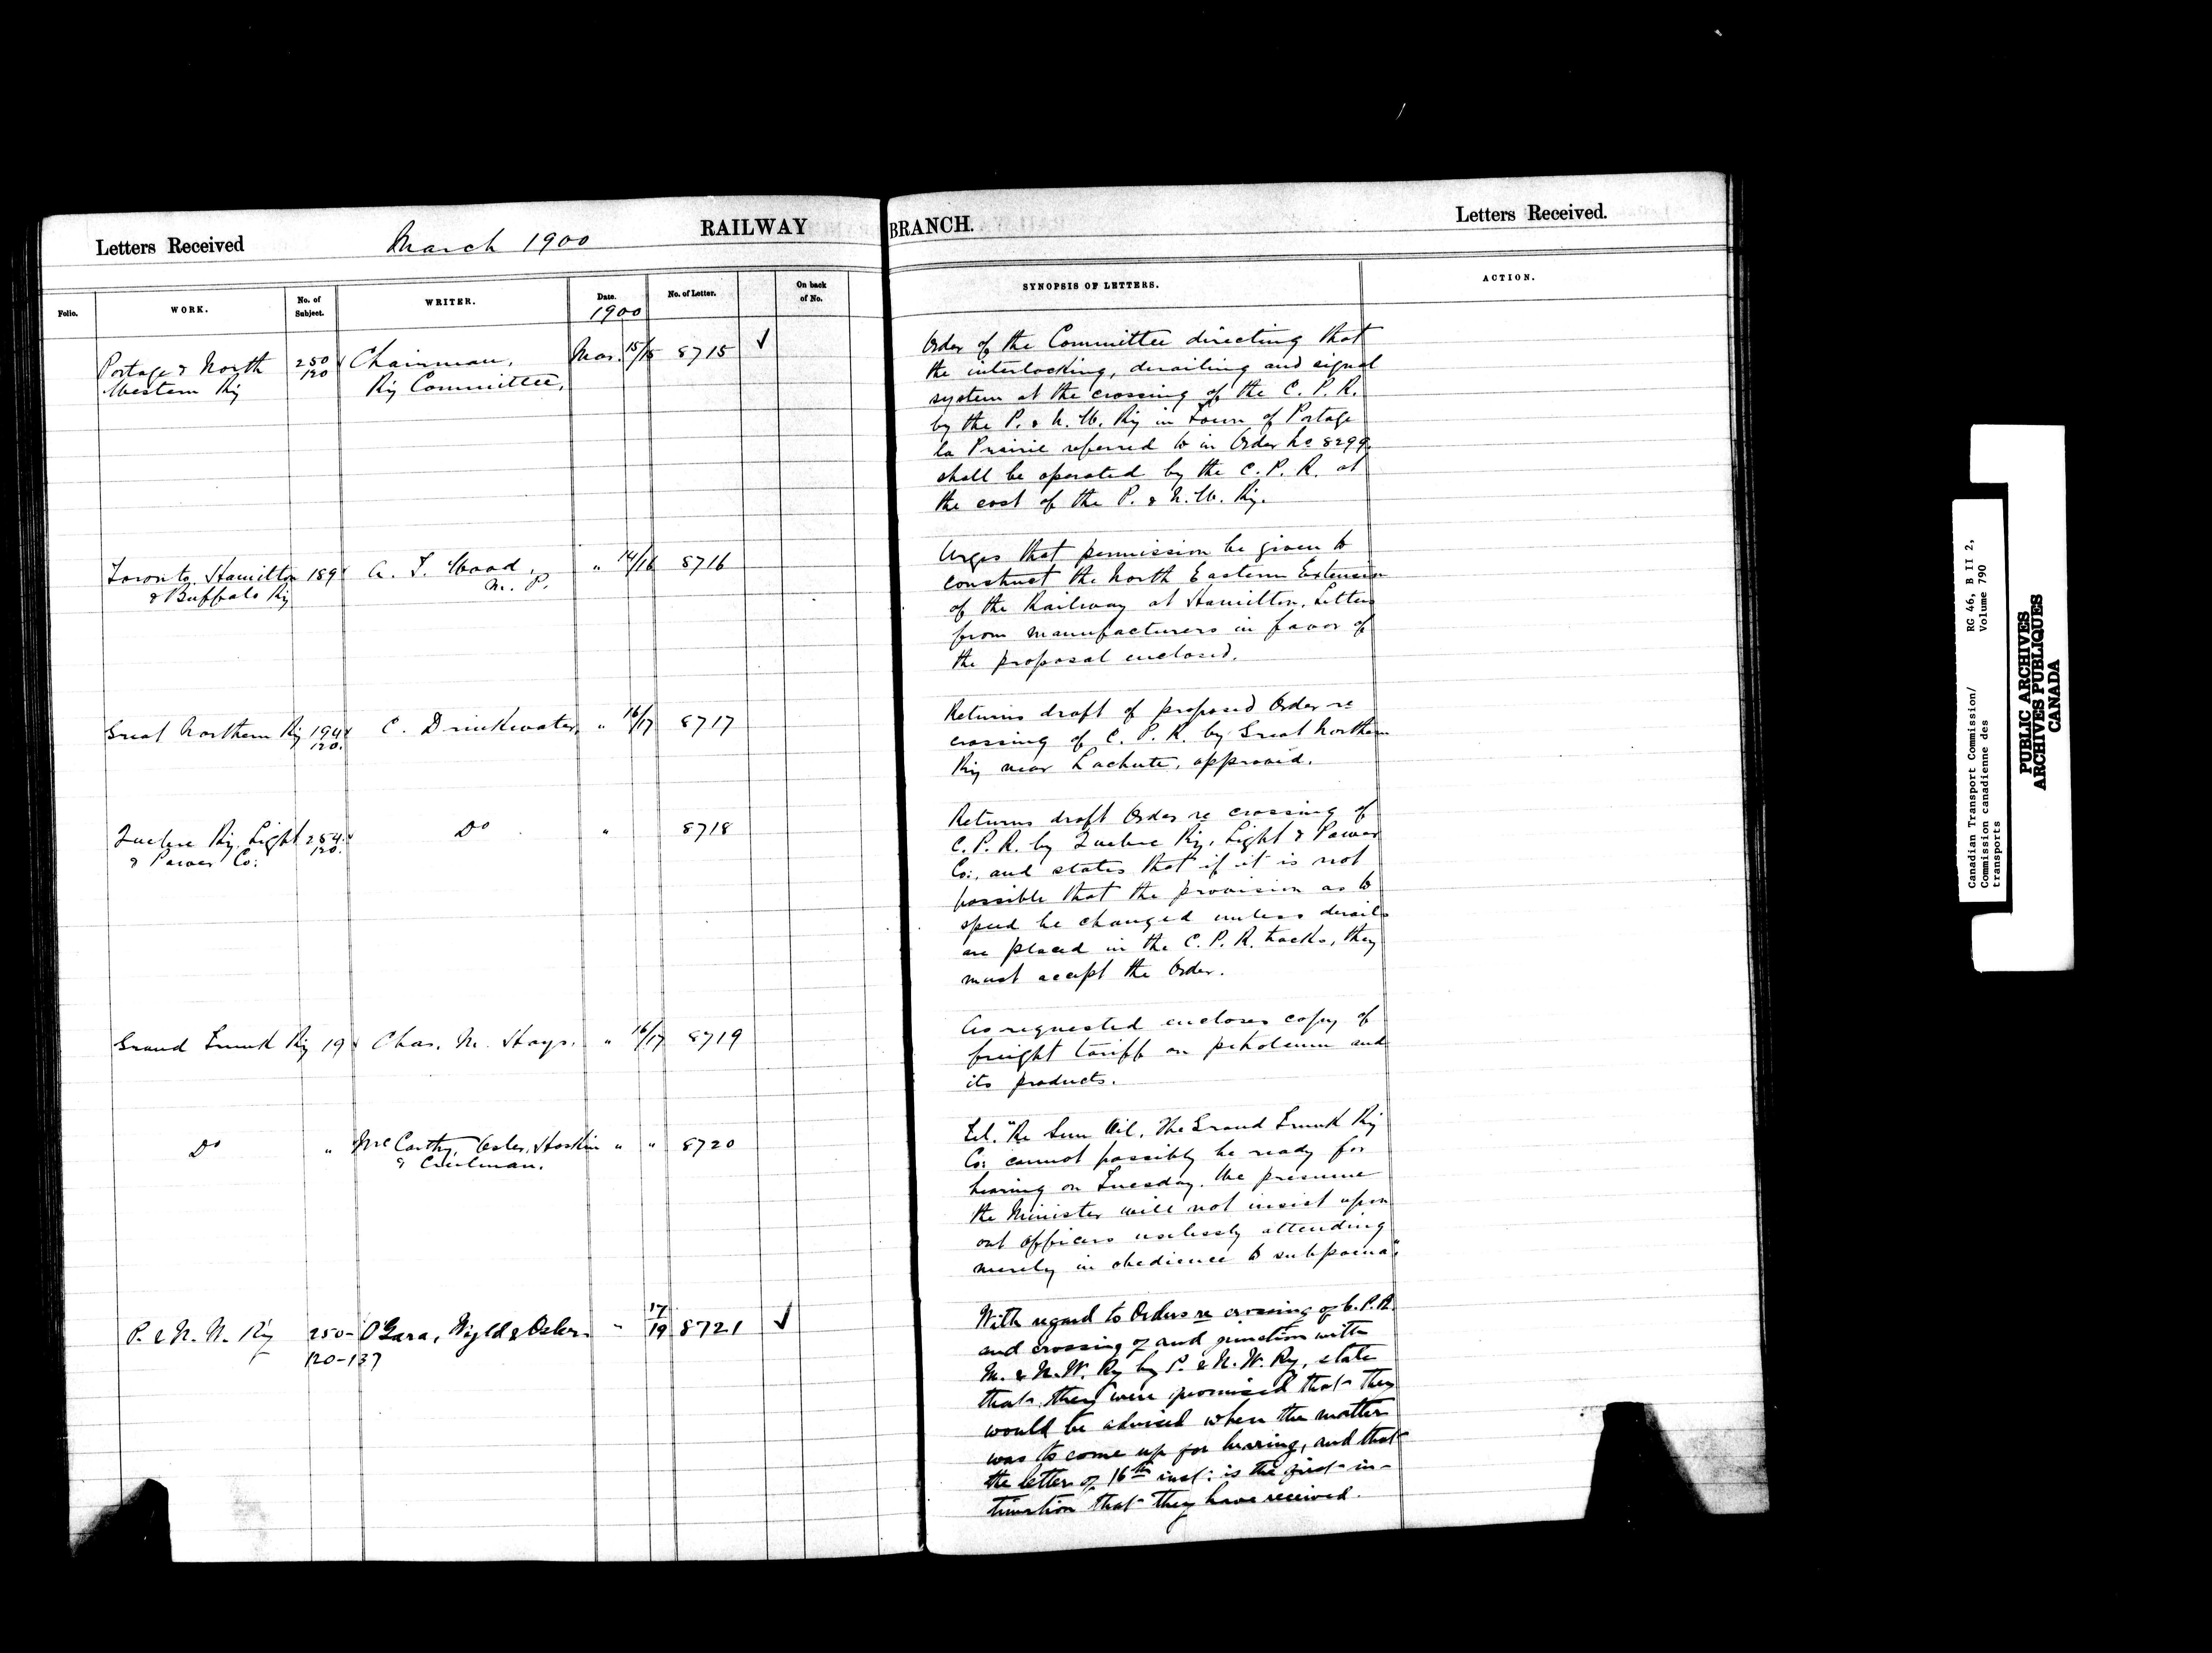 Letters Received
March 1900
RAILWAY
BRANCH.
Letters Received.
Folio.
WORK.
No. of Subject.
WRITER.
Date. 1900
No. of Letter.
On back of No.
SYNOPSIS OF LETTERS.
ACTION.
Portage & North
Western Ry
250
120
Chairman,
Ry Committee,
Mar. 15/15 8715 ✓
Order of the Committee directing that
the interlocking, derailing and signal
system at the crossing of the C. P. R.
by the P. & N. W. Ry in Town of Portage
la Prairie referred to in Order No 8299
shall be operated by the C. P. R. at
the cost of the P. & N. W. Ry.
Toronto, Hamilton
& Buffalo Ry
189
A. T. Wood,
M. P.
" 14/16 8716
Urges that permission be given to
construct the North Eastern Extension
of the Railway at Hamilton. Letters
from manufacturers in favor of
the proposal enclosed.
Great Northern Ry
194
120.
C. Drinkwater,
" 16/17 8717
Returns draft of proposed Order re
crossing of C. P. R. by Great Northern
Ry near Lachute, approved.
Quebec Ry. Light
& Power Co:
254
120.
Do
" 8718
Returns draft Order re crossing of
C. P. R. by Quebec Ry, Light & Power
Co:, and states that if it is not
possible that the provision as to
speed be changed unless derails
are placed in the C. P. R. tracks, they
must accept the Order.
Grand Trunk Ry 19
Chas. M. Hays.
" 16/17 8719
As requested encloses copy of
freight tariff on petroleum and
its products.
Do "
McCarthy, Osler, Hoskin
& Creelman.
" " 8720
Tel. "Re Sun Oil. The Grand Trunk Ry
Co: cannot possibly be ready for
hearing on Tuesday. We presume
the Minister will not insist upon
our officers uselessly attending
merely in obedience to subpoena".
P. & N. W. Ry
250-
120-137
O'Gara, Wyld & Osler.
" 17/19 8721 ✓
With regard to Orders re crossing of C. P. R.
and crossing of and junction with
M. & N. W. Ry by P. & N. W. Ry, state
that they were promised that they
would be advised when the matter
was to come up for hearing, and that
the letter of 16th inst: is the first in-
timation that they have received.
Canadian Transport Commission/
Commission canadienne des
transports
RG 46, B II 2,
Volume 790
PUBLIC ARCHIVES
ARCHIVES PUBLIQUES
CANADA